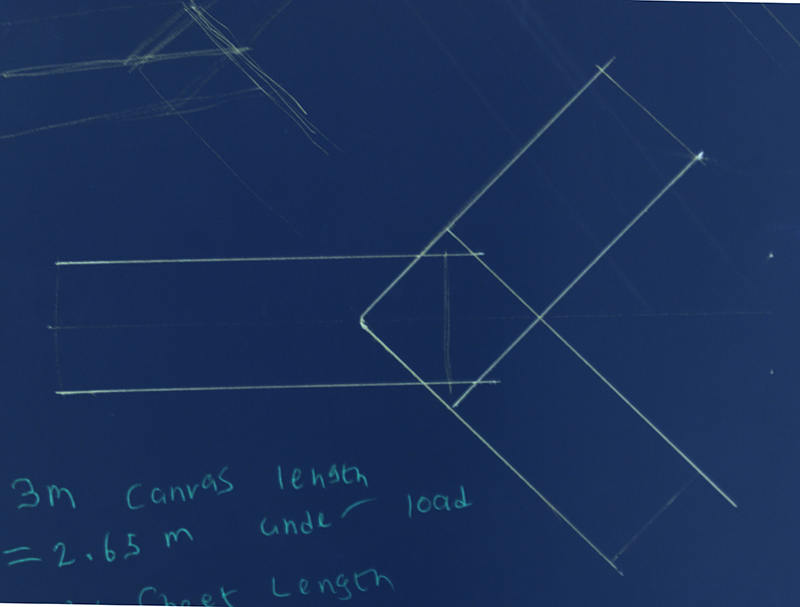 3m canvas length
= 2.65 m under load
Sheet Length